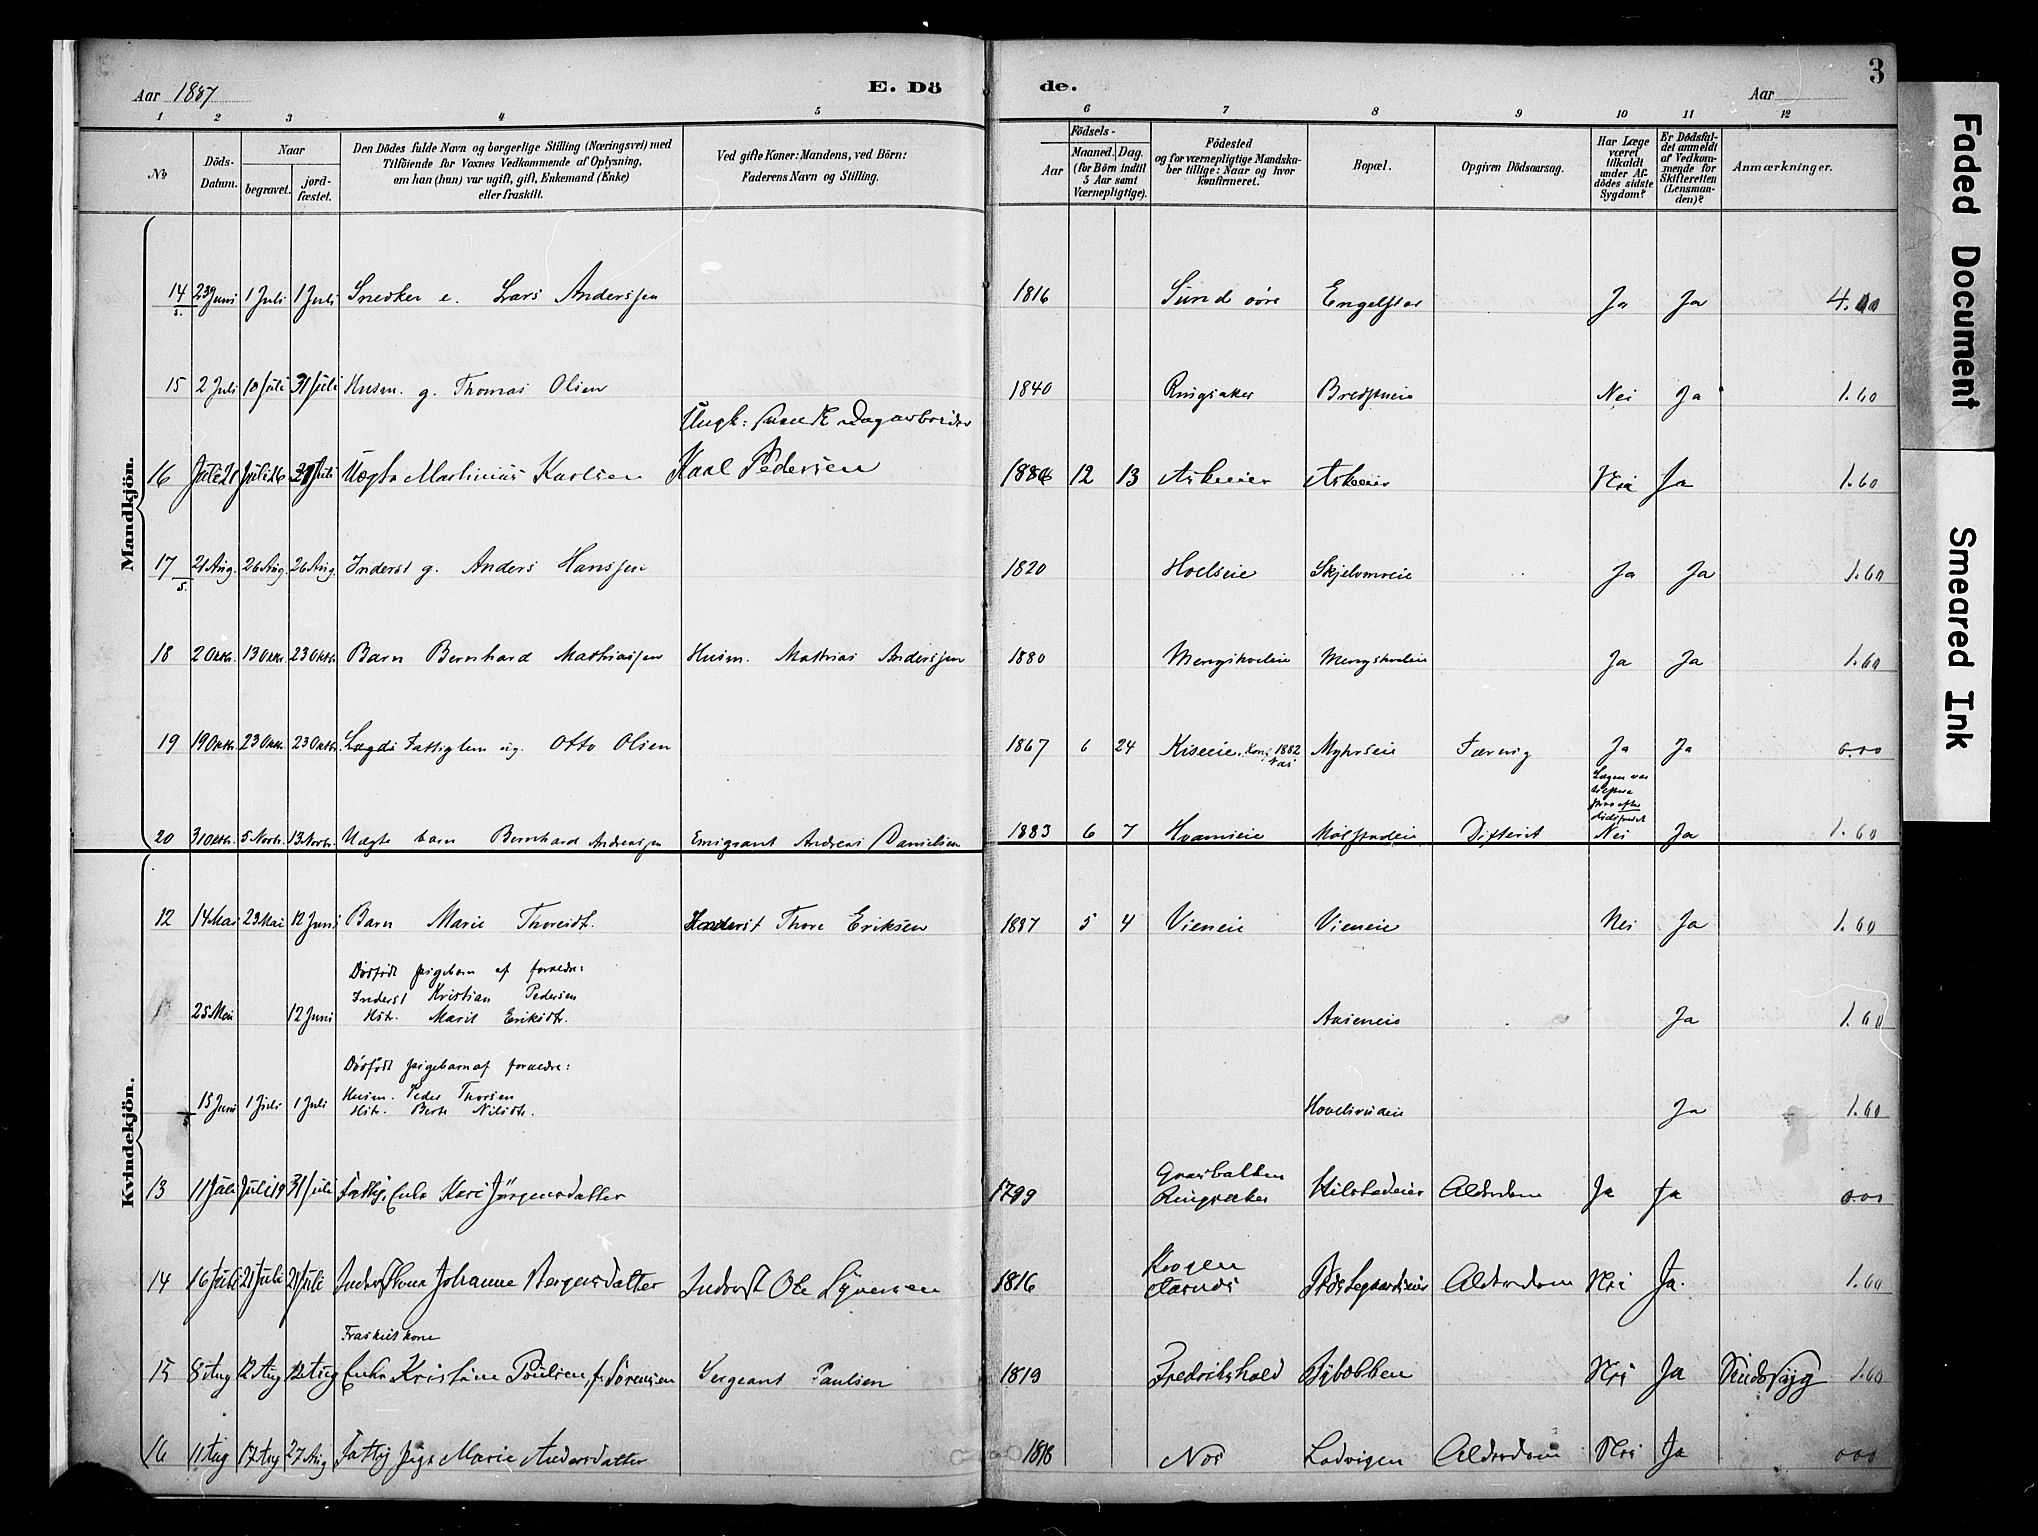 Aar 1887
E. Döde.
Aar
3
1 2 3 4 5 6 7 8 9 10 11 12
No
Döds-Datum.
Naar
begravet.
jord-fæstet.
Den Dödes fulde Navn og borgerlige Stilling (Næringsvei) med
Tilföiende for Voxnes Vedkommende af Oplysning,
om han (hun) var ugift, gift, Enkemand (Enke)
eller fraskilt.
Ved gifte Koner: Mandens, ved Börn:
Faderens Navn og Stilling.
Födsels-
Aar
Maaned. Dag.
(for Börn indtil
5 Aar samt
Værnepligtige).
Födested
og for værnepligtige Mandska-
ber tillige: Naar og hvor
konfirmeret.
Bopæl.
Opgiven Dödsaarsag.
Har Læge
været
tilkaldt
under Af-
dödes sidste
Sygdom?
Er Dödsfal-
det anmeldt
af Vedkom-
mende for
Skifteretten
(Lensman-
den)?
Anmærkninger.
Mandkjön.
14 23 Juni 1 Juli 1 Juli Snedker e. Lars Anderssen 1816 Engelstad Ja Ja
15 2 Juli 10 Juli 31 Juli Husm. g. Thomas Olsen 1840 Ringsaker Nei Ja 1.60
dagarbeider
16 Juli 21 Juli 26 31 Juli Martinius Karlsen Karl Pedersen 12 13 Askeeier Askeeier Nei Ja 1.60
17 21 Aug. 26 Aug. 26 Aug. Inderst g. Anders Hanssen 1820 Hoelseie Ja Ja 1.60
18 2 Oktr. 13 Oktr. 23 Oktr. Barn Bernhard Mathiassen Husm. Mathias Anderssen 1880 Mengshoeleie Mengshoeleie Ja Ja 1.60
19 19 Oktr. 23 Oktr. 23 Oktr. Lægds Fattiglem ug. Otto Olsen 1867 6 24 Kiseeie, Konf. 1882 Næs Myhrseie Tæring Ja Ja 0.00
20 31 Oktr. 5 Novbr. 13 Novbr. Uægte barn Bernhard Andreassen Emigrant Andreas Danielsen 1883 6 7 Difterit Nei Ja 1.60
Kvindekjön.
12 14 Mai 23 Mai 12 Juni Barn Marie Thoresdt. Inderst Thore Eriksen 1887 5 4 Vieneie Vieneie Nei Ja 1.60
Dödfödt pigebarn af forældre:
Inderst Kristian Pedersen
25 Mai 12 Juni Hstr. Marit Eriksdtr. Aaseneie Ja 1.60
Dödfödt pigebarn af forældre:
Husm. Peder Thorsen
15 Juni 1 Juli 1 Juli Hstr. Berte Nilsdtr. Ja 1.60
13 11 Juli Juli 19 31 Juli Fattig. Enke Kari Jörgensdatter 1799 Ringsaker Alderdom Ja Ja 0.00
14 16 Juli 21 Juli 21 Juli Johanne Inderst Ole 1816 Alderdom Nei Ja. 1.60
Fraskilt kone
15 8 Aug 12 Aug 12 Aug Enke Kristine Poulsen f. Sörensen Sergeant Paulsen 1819 Fredrikshald Nei Ja Sindssyg 1.60
16 11 Aug 17 Aug 27 Aug Fattig Pige Marie Andersdatter 1818 Nes Alderdom Nei Ja 000
Faded Document
Smeared Ink